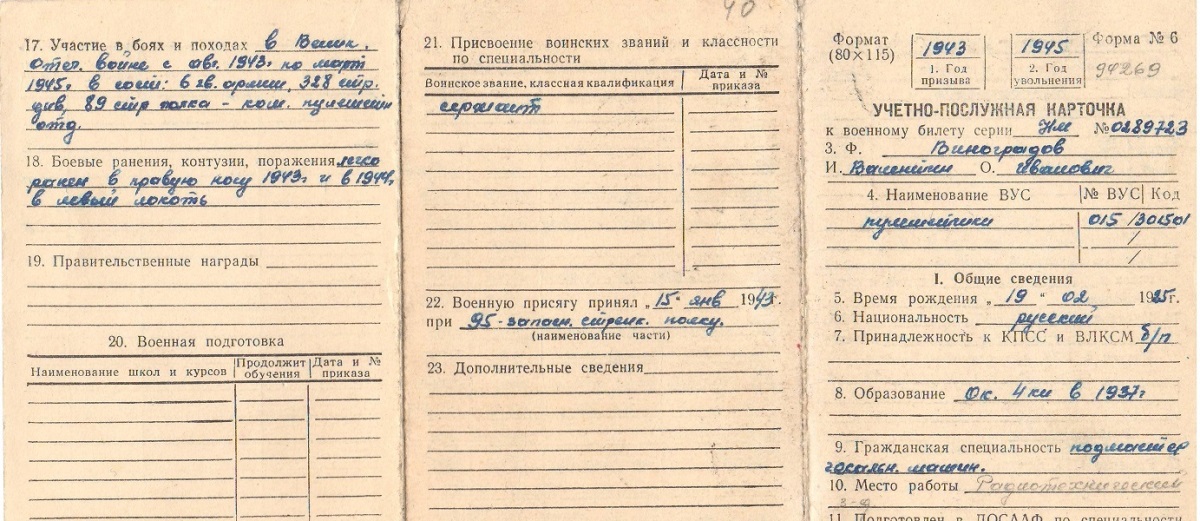 17. Участие в боях и походах в Велик.
отеч. войне с авг. 1943г по март
1945г в сост: 6 гв. армии, 328 стр.
див, 89 стр полка – ком. пулеметн
отд.
18. Боевые ранения, контузии, поражения легко
ранен в правую ногу 1943г и в 1944г
в левый локоть
19. Правительственные награды
20. Военная подготовка
Наименование школ и курсов
Продолжит обучения
Дата и № приказа
40
21. Присвоение воинских званий и классности
по специальности
Воинское звание, классная квалификация
Дата и № приказа
сержант
22. Военную присягу принял „15“ янв 1943г.
при 95-запасн. стрелк. полку.
(наименование части)
23. Дополнительные сведения
Формат
(80×115)
1943
1. Год
призыва
1945
2. Год
увольнения
Форма № 6
94269
УЧЕТНО-ПОСЛУЖНАЯ КАРТОЧКА
к военному билету серии НМ №0289723
3. Ф. Виноградов
И. Валентин О. Иванович
4. Наименование ВУС |№ ВУС| Код
пулеметчики 015 /301501
/
/
1. Общие сведения
5. Время рождения „19“ 02 1925г.
6. Национальность русский
7. Принадлежность к КПСС и ВЛКСМ б/п
8. Образование Ок. 4 кл в 1937г
9. Гражданская специальность подмастер
машин.
10. Место работы Радиотехнический
з-д
11. Подготовлен в ДОСААФ по специальности